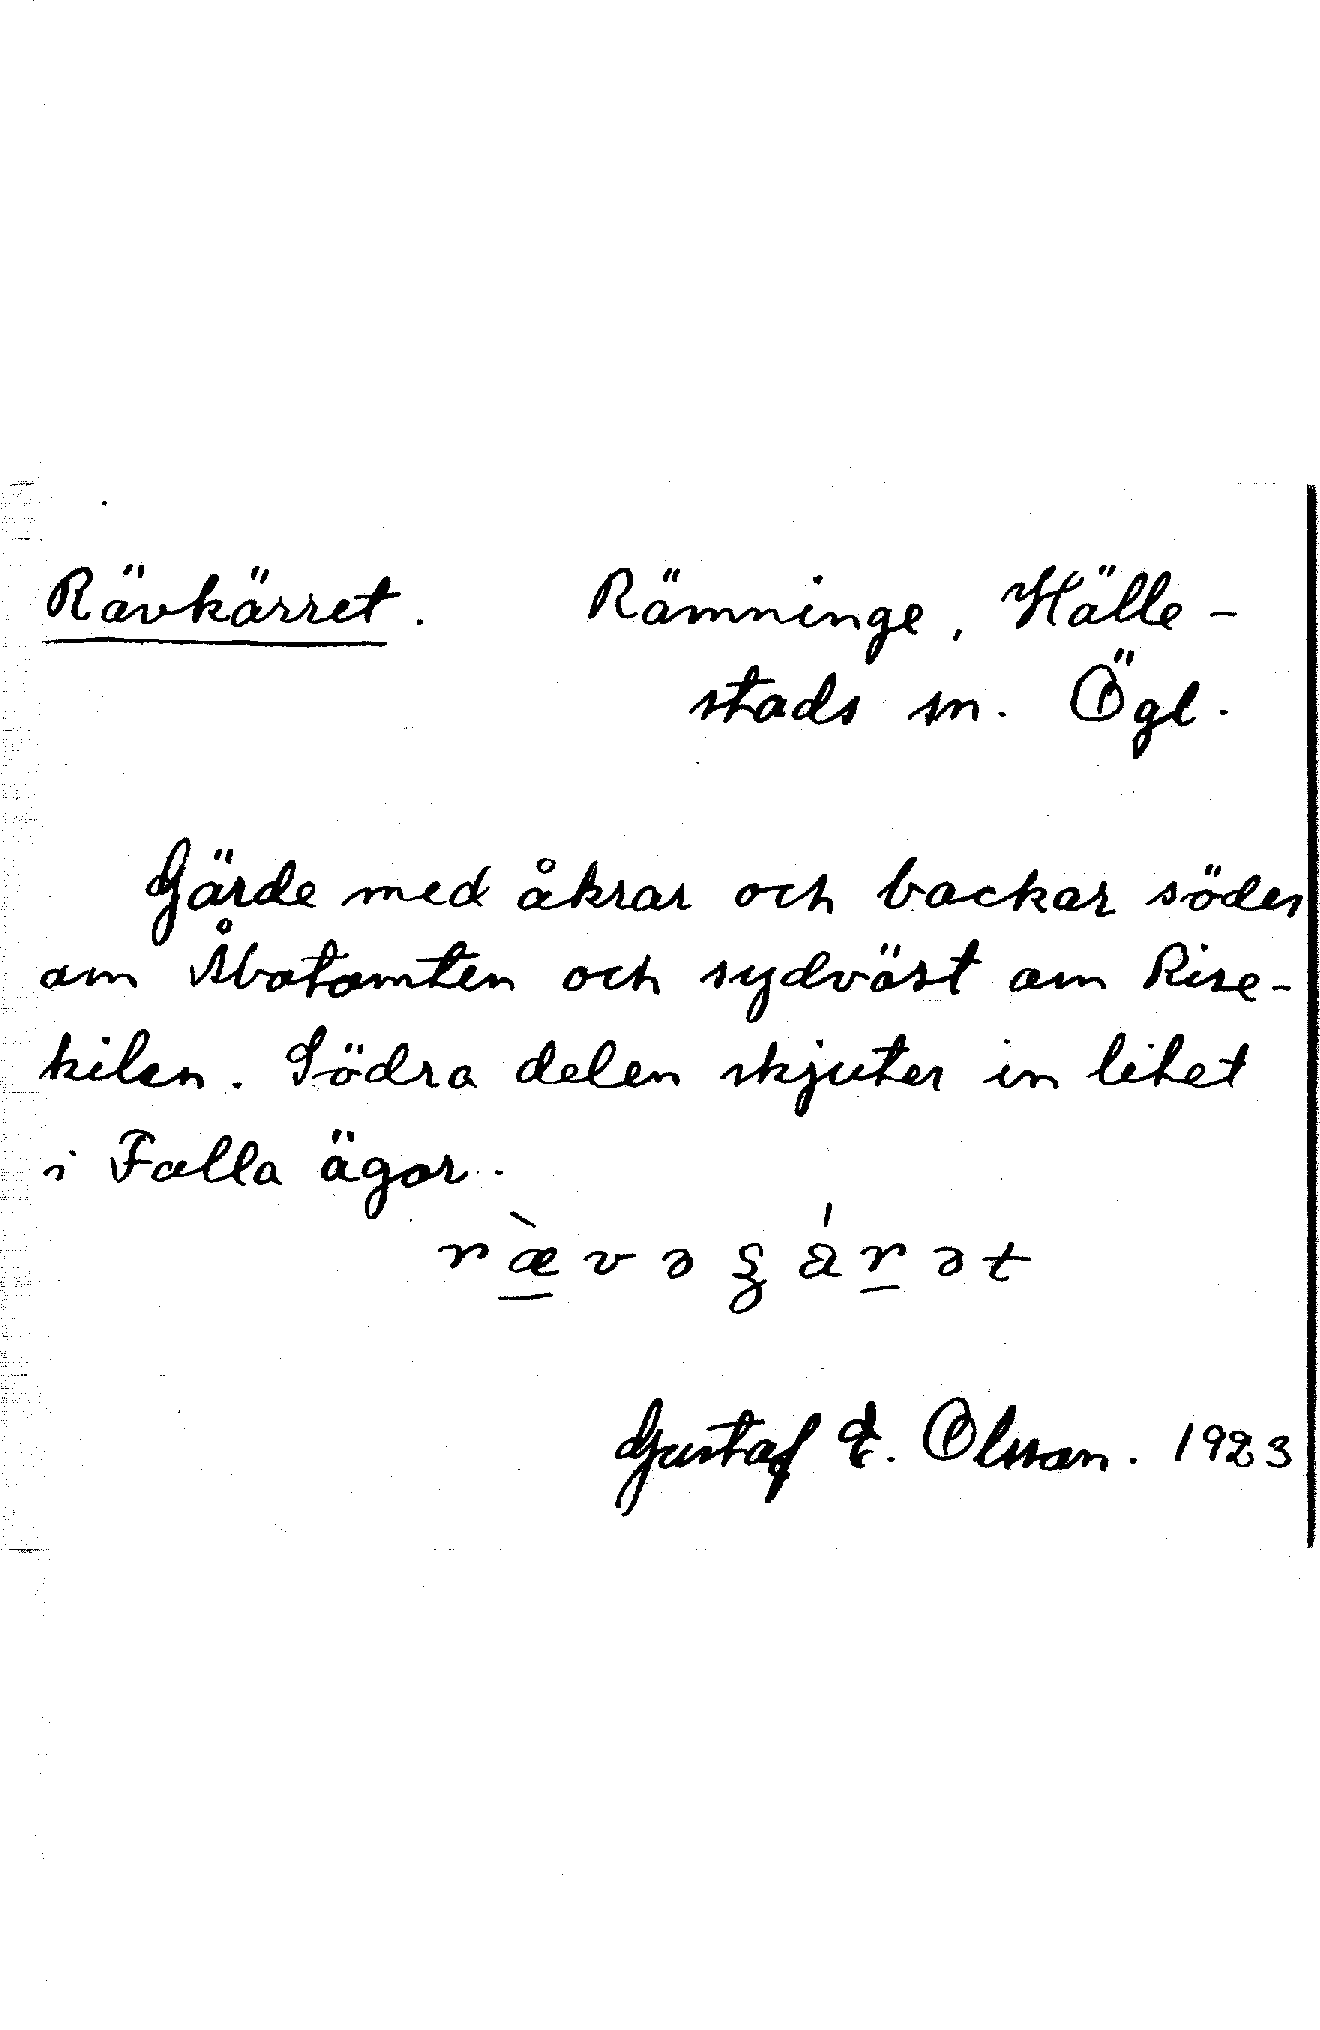 Rävkärret. Rämninge, Hälle-
stads sn. Ögl.
Gärde med åkrar och backar söder
om Åbotomten och sydväst om Rise-
kilen. Södra delen skjuter in litet
i Falla ägor.
Gustaf E. Olsson. 1923